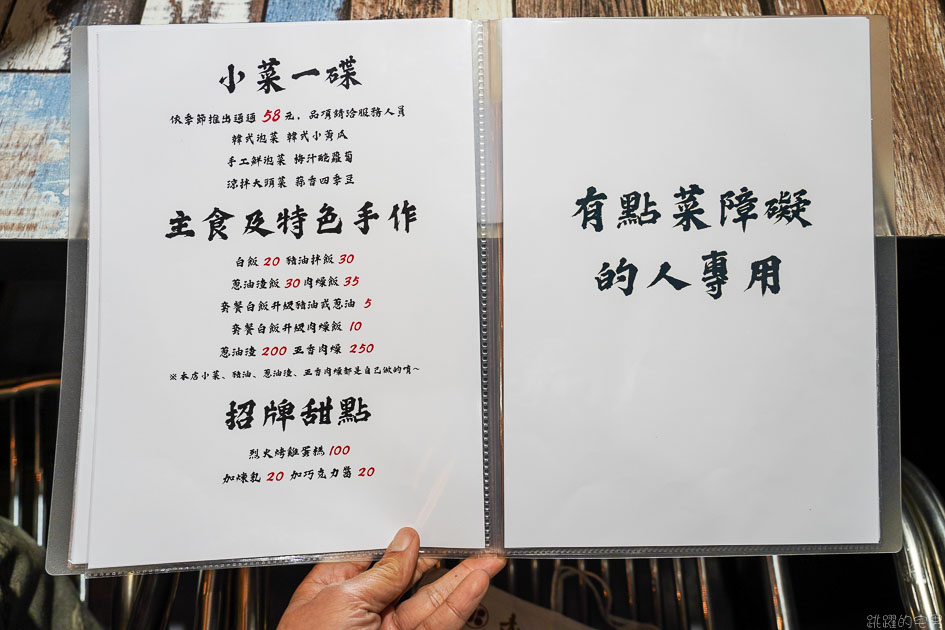 小菜一碟
依季節推出通通 58 元，品項請洽服務人員
韓式泡菜 韓式小黃瓜
手工鮮泡菜 梅汁醃蘿蔔
涼拌大頭菜 蒜香四季豆
主食及特色手作
白飯 20 豬油拌飯 30
蔥油渣飯 30 肉燥飯 35
套餐白飯升級豬油或蔥油 5
套餐白飯升級肉燥飯 10
蔥油渣 200 五香肉燥 250
※本店小菜、豬油、蔥油渣、五香肉燥都是自己做的唷～
招牌甜點
烈火烤雞蛋糕 100
加煉乳 20 加巧克力醬 20
有點菜障礙
的人專用
跳躍的宅男